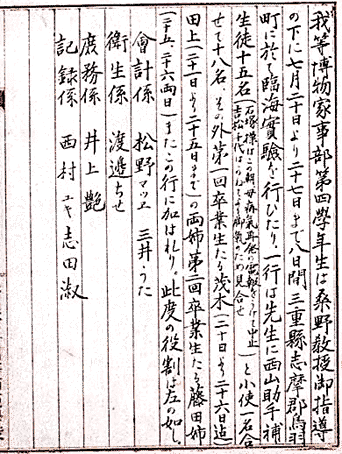 我等博物家事部第四學年生は桑野敎授御指導
の下に七月二十日より二十七日まで八日間三重縣志摩郡鳥羽
町に於る臨海實驗を行ひたり、一行は先生に西山助手補
生徒十五名(石塚様はこの朝母病氣 の電報をうけて中止
吉松 代は 御病氣のため見合せ)と小使一名合
せて十八名、その外第一回卒業生たる茂木(二十日より二十六日迄)
田上(二十一日より二十五日まで)の両姉第二回卒業生たる藤田姉
(二十五、二十六両日)またこの行に加はれり。此度の役割は左の如し
會計係 松野マツヱ 三井うた
衛生係 渡邊ちせ
庶務係 井上艶
記録係 西村ユキ 志田淑